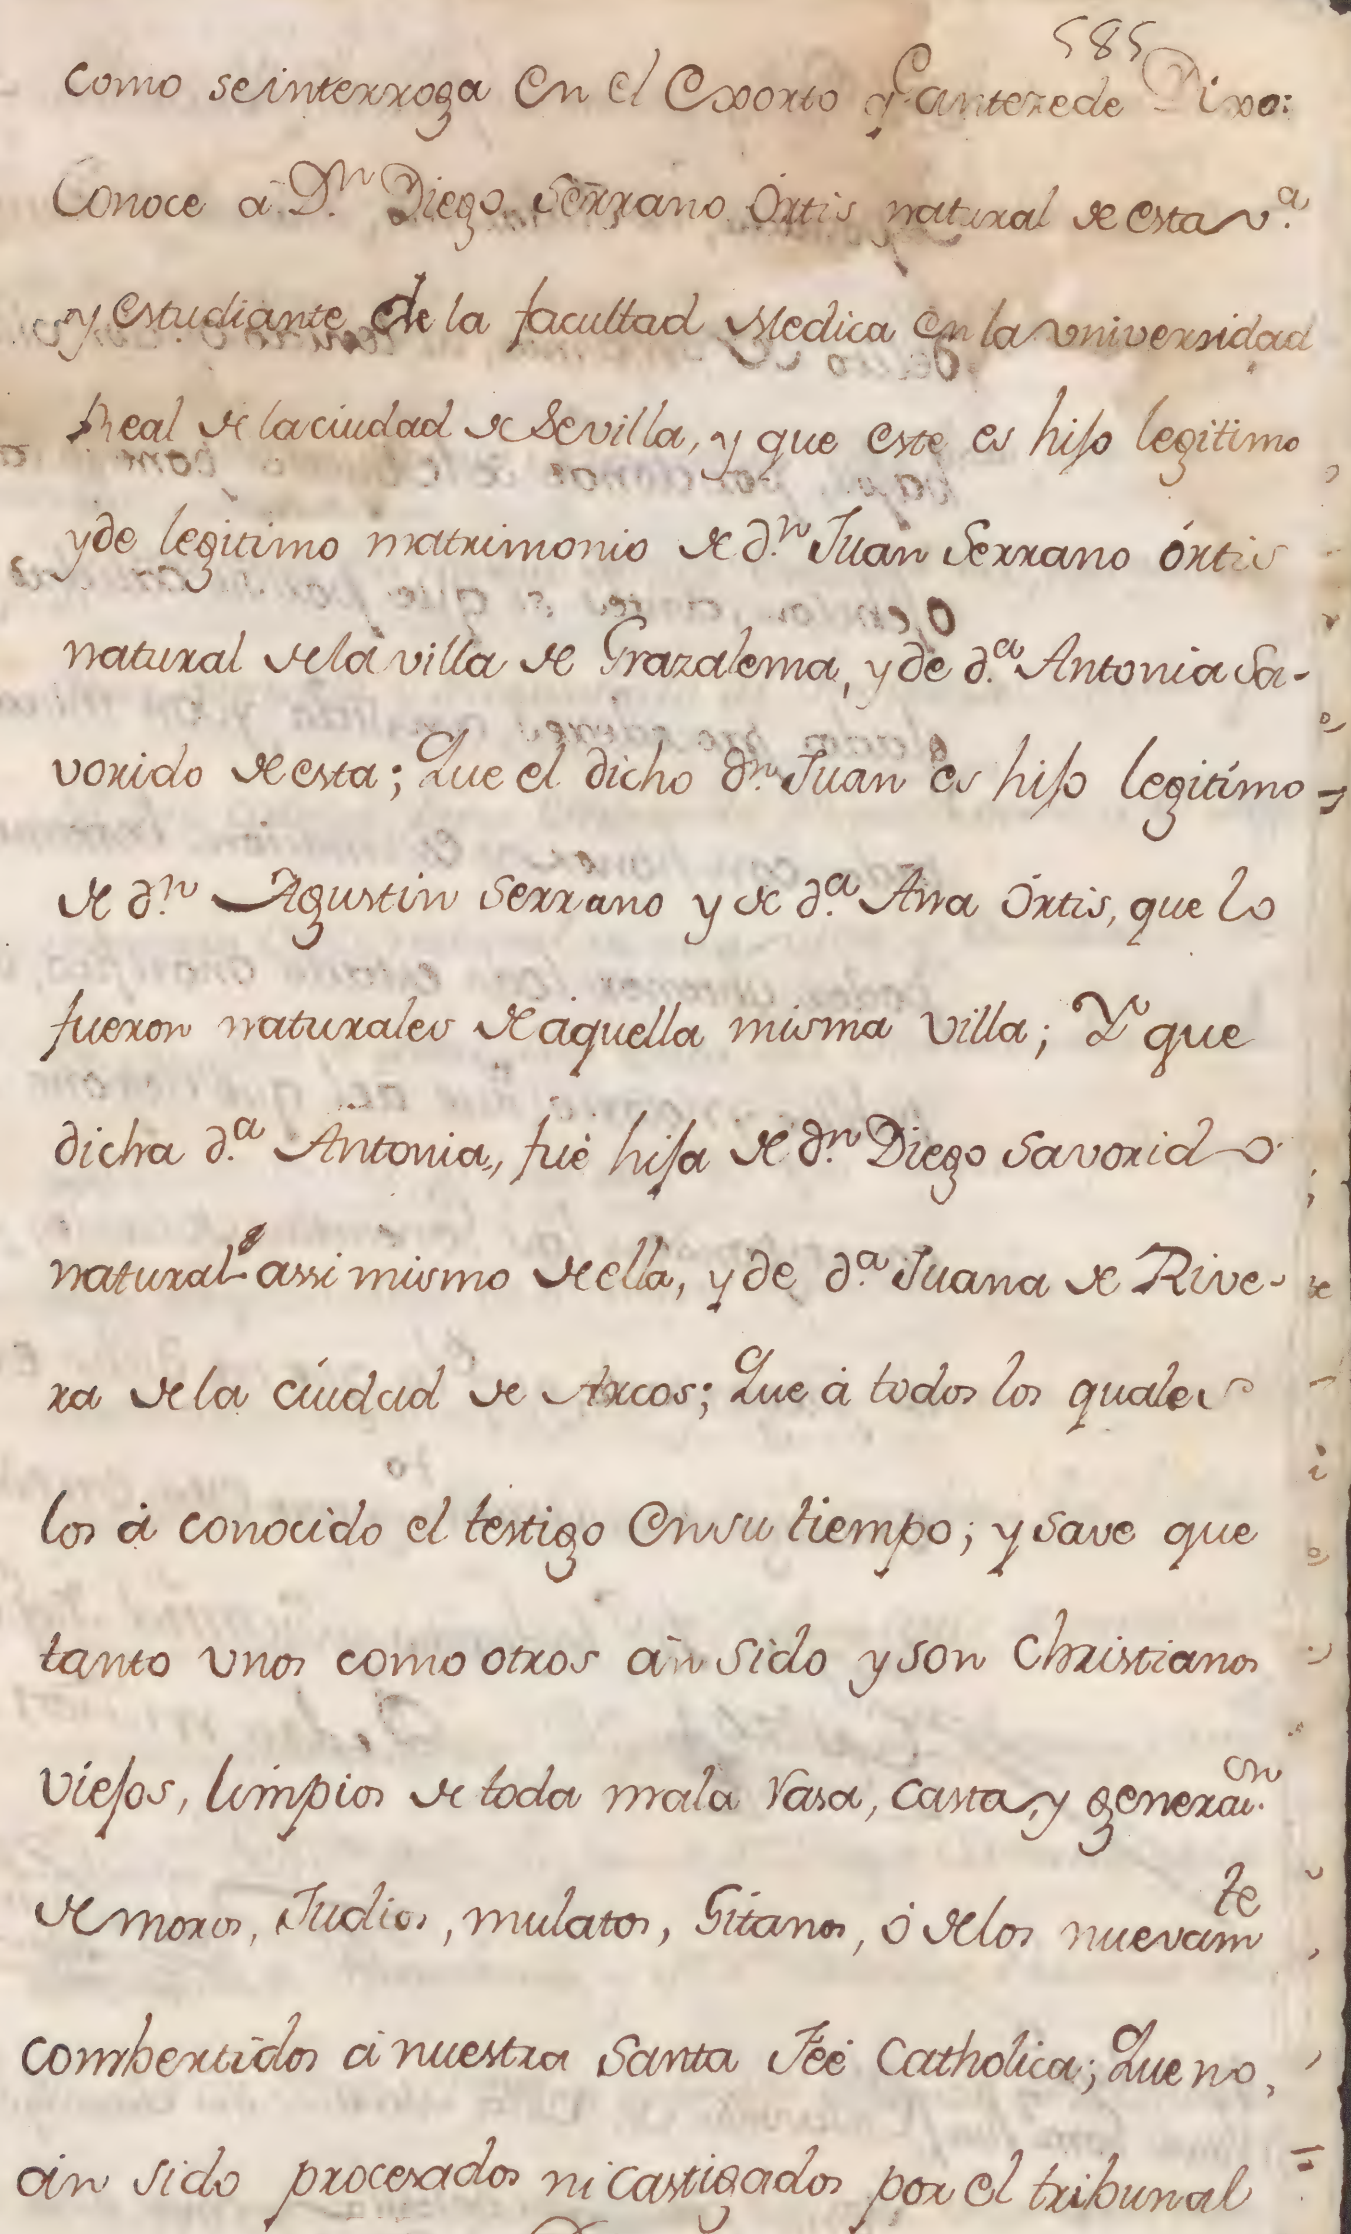 585
como se interroga en el exorto q.e antezede Dixo:
Conoce a D.n Diego Serrano Ortis natural de esta v.a
y estudiante de la facultad Medica en la vniversidad
Real de la ciudad de Sevilla, y que este es hijo legitimo
y de legitimo matrimonio de d.n Juan Serrano órtis
natural de la villa de Grazalema, y de d.a Antonia Sa-
vorido de esta; Que el dicho d.n Juan es hijo legitimo
de d.n Agustin Serrano y de d.a Ana Ortis, que lo
fueron naturales de aquella misma villa; Y que
dicha d.a Antonia, fué hija de d.n Diego Savorido
natural assi mismo de ella, y de d.a Juana de Rive-
ra de la ciudad de Arcos; Que á todos los quales
los á conocido el testigo en su tiempo; y save que
tanto vnos como otros án sido y son Christianos
viejos, limpios de toda mala rasa, casta, y generac.on
de moros, Judios, mulatos, Gitanos, ó de los nuevam.te
combertidos á nuestra Santa Feé Catholica; Que no,
án sido procesados ni castigados por el tribunal